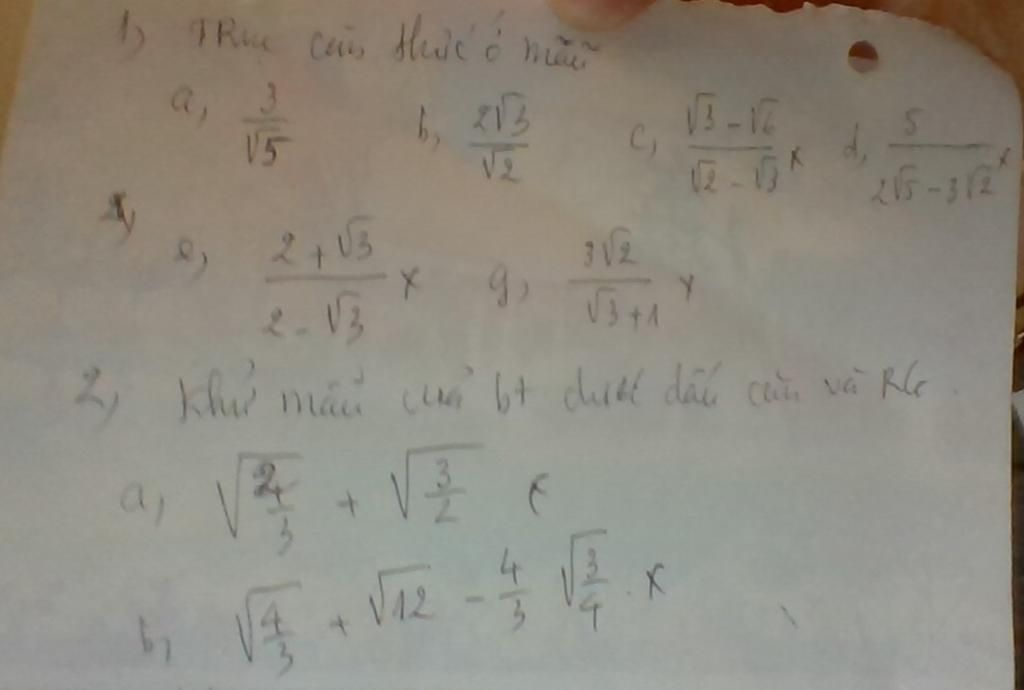 1, TRục căn thức ở mẫu
a, 3/√5 b, 2√3/√2 c, (√3 - √6)/(√2 - √3) x d, 5/(2√5 - 3√2) x
e, (2 + √3)/(2 - √3) x g, 3√2/(√3 + 1) x
2, Khử mẫu của bt dưới dấu căn và RG.
a, √(2/3) + √(3/2) x
b, √(4/3) + √12 - 4/3 √(3/4) . x